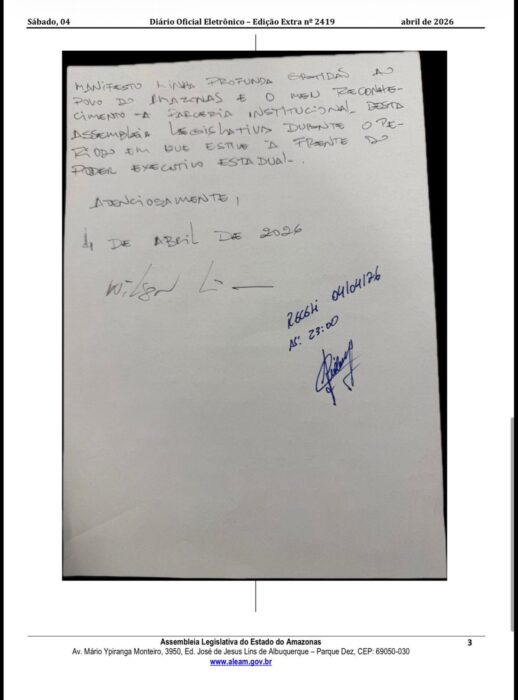 Sábado, 04 Diário Oficial Eletrônico – Edição Extra nº 2419 abril de 2026
MANIFESTO MINHA PROFUNDA GRATIDÃO AO
POVO DO AMAZONAS E O MEU RECONHE-
CIMENTO À PARCERIA INSTITUCIONAL DESTA
ASSEMBLEIA LEGISLATIVA DURANTE O PE-
RÍODO EM QUE ESTIVE À FRENTE DO
PODER EXECUTIVO ESTADUAL.
ATENCIOSAMENTE,
4 DE ABRIL DE 2026
Wilson Li
RECEBI 04/04/26
ÀS: 23:00
Assembleia Legislativa do Estado do Amazonas 3
Av. Mário Ypiranga Monteiro, 3950, Ed. José de Jesus Lins de Albuquerque – Parque Dez, CEP: 69050-030
www.aleam.gov.br